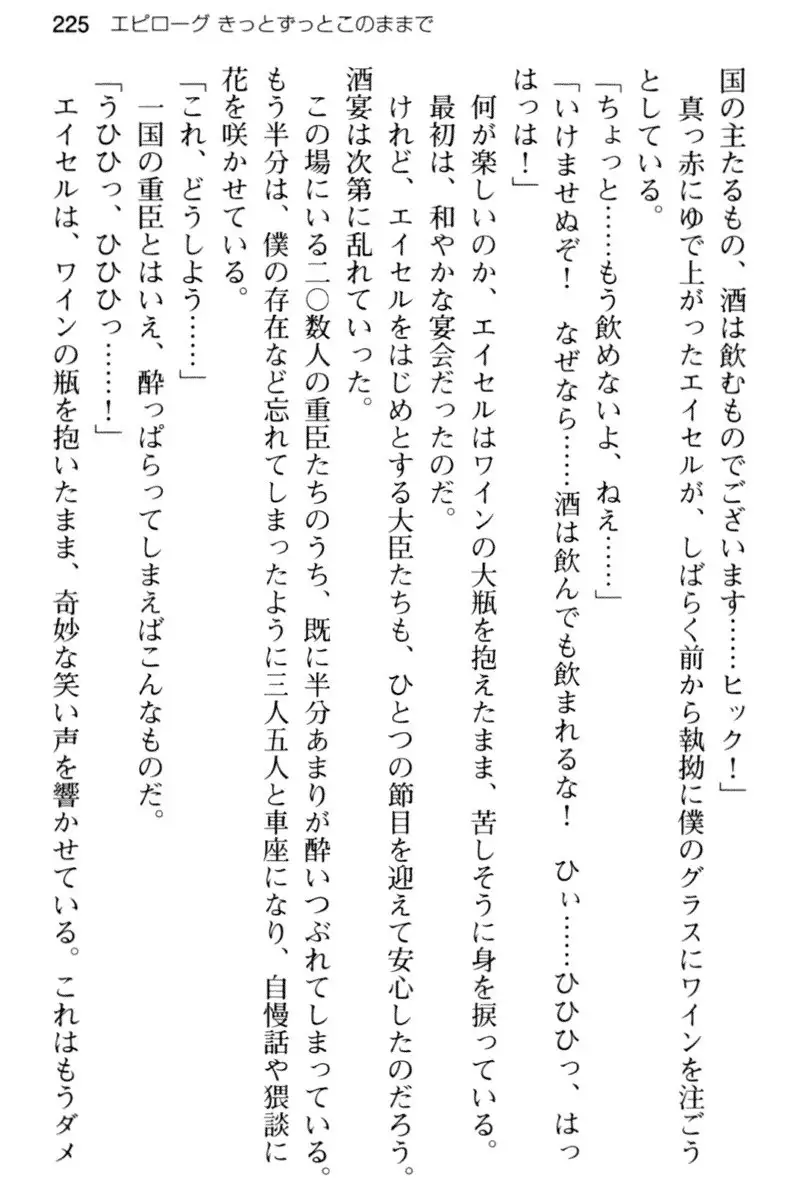 225 エピローグ きっとずっとこのままで
国の主たるもの、酒は飲むものでございます……ヒック！」
真っ赤にゆで上がったエイセルが、しばらく前から執拗に僕のグラスにワインを注ごう
としている。
「ちょっと……もう飲めないよ、ねえ……」
「いけませぬぞ！　なぜなら……酒は飲んでも飲まれるな！　ひぃ……ひひひっ、はっ
はっは！」
何が楽しいのか、エイセルはワインの大瓶を抱えたまま、苦しそうに身を捩っている。
最初は、和やかな宴会だったのだ。
けれど、エイセルをはじめとする大臣たちも、ひとつの節目を迎えて安心したのだろう。
酒宴は次第に乱れていった。
この場にいる二〇数人の重臣たちのうち、既に半分あまりが酔いつぶれてしまっている。
もう半分は、僕の存在など忘れてしまったように三人五人と車座になり、自慢話や猥談に
花を咲かせている。
「これ、どうしよう……」
一国の重臣とはいえ、酔っぱらってしまえばこんなものだ。
「うひひっ、ひひひっ……！」
エイセルは、ワインの瓶を抱いたまま、奇妙な笑い声を響かせている。これはもうダメ